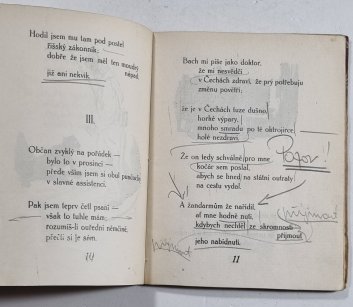 Hodil jsem mu tam pod postel
říšský zákonník:
dobře že jsem měl ten moudrý
nápad,
již ani nekvik.
III.
Občan zvyklý na pořádek —
bylo to v prosinci —
přede vším jsem si obul punčochy
v slavné assistenci.
Pak jsem teprv četl psaní —
však to tuhle mám;
rozumíš-li ouřední němčině,
přečti si je sám.
10
Bach mi píše jako doktor,
že mi nesvědčí
v Čechách zdraví, že prý potřebuju
změnu povětří;
že je v Čechách tuze dušno,
horké výpary,
mnoho smradu po té oktrojirce —
holé nezdraví.
Pozor!
Že on tedy schválně pro mne
kočár sem poslal,
abych se hned na státní outraty
na cestu vydal.
A žandarmům že nařídil,
přijmout
of mne hodně nutí,
kdybych nechtěl ze skromnosti
přijmout
přijmout
jeho nabídnutí.
11